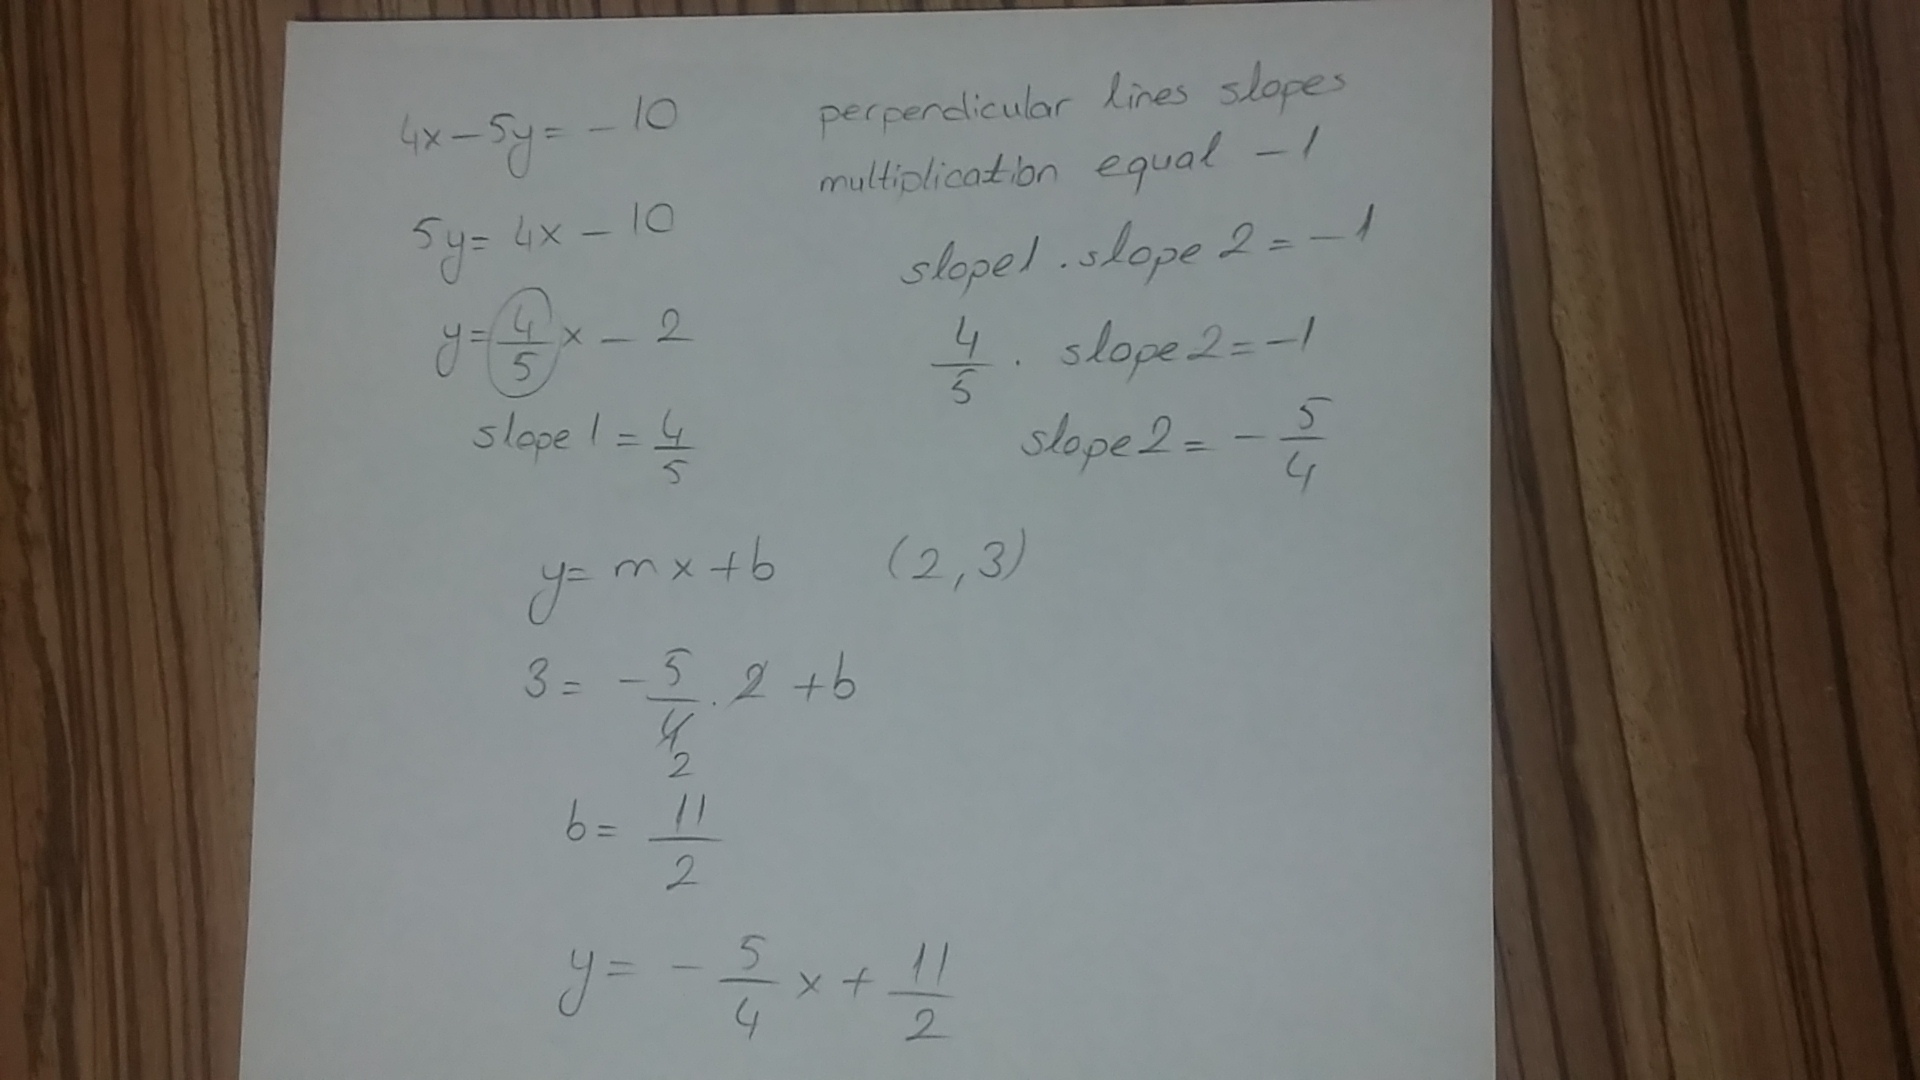 4x-5y=-10
5y=4x-10
y=4/5x-2
slope1=4/5
perpendicular lines slopes
multiplication equal -1
slope1.slope2=-1
4/5.slope2=-1
slope2=-5/4
y=mx+b (2,3)
3=-5/4.2+b
2
b=11/2
y=-5/4x+11/2